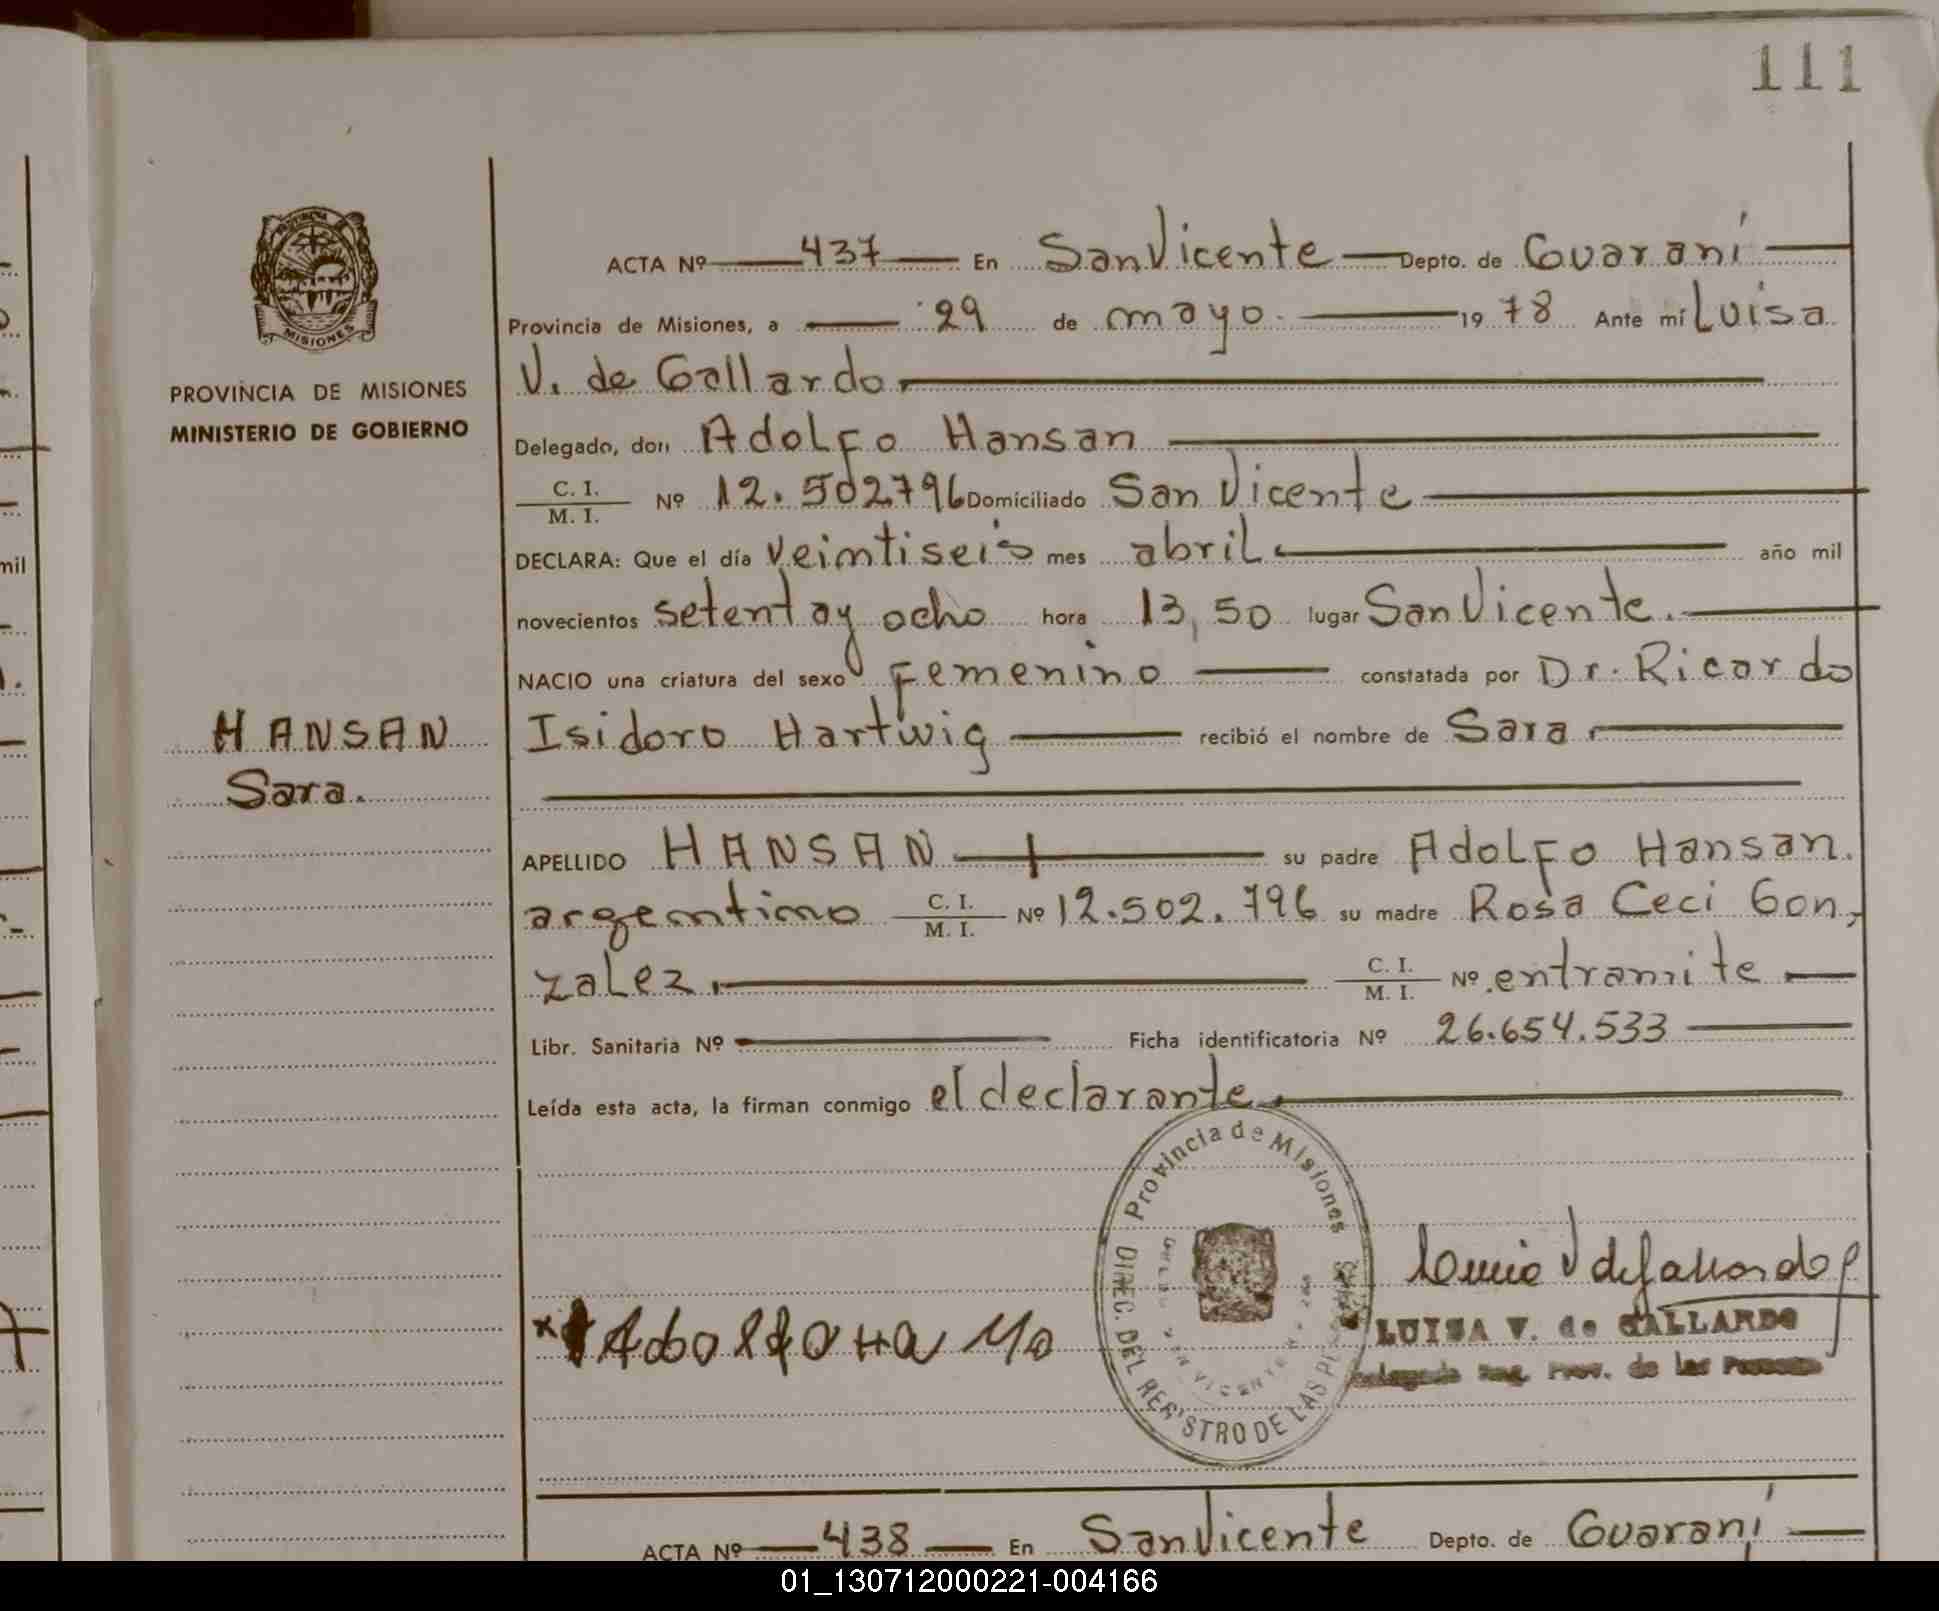 111
ACTA Nº 437 En San Vicente Depto. de Guaraní
Provincia de Misiones, a 29 de mayo 19 78 Ante mí Luisa
V. de Gallardo
PROVINCIA DE MISIONES
MINISTERIO DE GOBIERNO
Delegado, don Adolfo Hansan
C. I. / M. I. Nº 12.502796 Domiciliado San Vicente
DECLARA: Que el día veintiseis mes abril año mil
novecientos setenta y ocho hora 13,50 lugar San Vicente.
NACIO una criatura del sexo femenino constatada por Dr. Ricardo
Isidoro Hartwig recibió el nombre de Sara
HANSAN
Sara.
APELLIDO HANSAN su padre Adolfo Hansan.
argentino C. I. / M. I. Nº 12.502.796 su madre Rosa Ceci Gon-
zalez. C. I. / M. I. Nº en tramite
Libr. Sanitaria Nº Ficha identificatoria Nº 26.654.533
Leída esta acta, la firman conmigo el declarante
Provincia de Misiones
DIREC. DEL REGISTRO DE LAS
LUISA V. de GALLARDO
Prov. de las
ACTA Nº 438 En San Vicente Depto. de Guaraní
MISIONES
mil
01_130712000221-004166